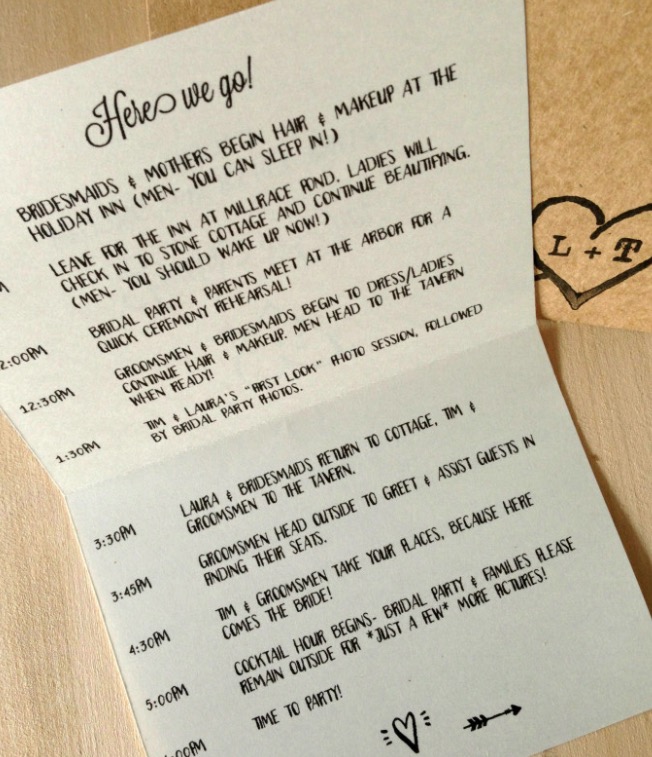 Here we go!
BRIDESMAIDS & MOTHERS BEGIN HAIR & MAKEUP AT THE
HOLIDAY INN (MEN- YOU CAN SLEEP IN!)
LEAVE FOR THE INN AT MILLRACE POND. LADIES WILL
CHECK IN TO STONE COTTAGE AND CONTINUE BEAUTIFYING.
(MEN- YOU SHOULD WAKE UP NOW!)
2:00PM BRIDAL PARTY & PARENTS MEET AT THE ARBOR FOR A
QUICK CEREMONY REHEARSAL!
12:30PM GROOMSMEN & BRIDESMAIDS BEGIN TO DRESS/LADIES
CONTINUE HAIR & MAKEUP. MEN HEAD TO THE TAVERN
WHEN READY!
1:30PM TIM & LAURA'S "FIRST LOOK" PHOTO SESSION, FOLLOWED
BY BRIDAL PARTY PHOTOS.
3:30PM LAURA & BRIDESMAIDS RETURN TO COTTAGE, TIM &
GROOMSMEN TO THE TAVERN.
3:45PM GROOMSMEN HEAD OUTSIDE TO GREET & ASSIST GUESTS IN
FINDING THEIR SEATS.
4:30PM TIM & GROOMSMEN TAKE YOUR PLACES, BECAUSE HERE
COMES THE BRIDE!
5:00PM COCKTAIL HOUR BEGINS- BRIDAL PARTY & FAMILIES PLEASE
REMAIN OUTSIDE FOR *JUST A FEW* MORE PICTURES!
:00PM TIME TO PARTY!
L + T